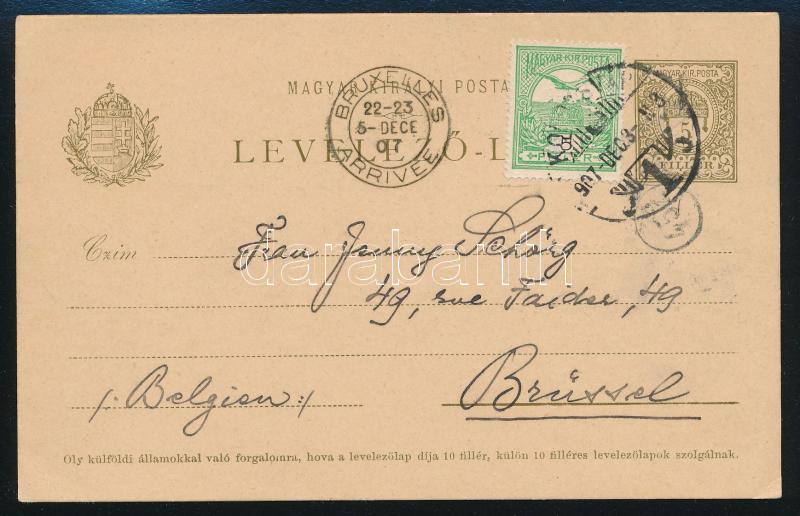 MAGYAR KIRÁLYI POSTA
LEVELEZŐ-L
BRUXELLES
22-23
5-DECE
07
ARRIVÉE
MAGYAR KIR. POSTA
5
FILLÉR
907-DEC 3
Czim
Frau Jenny Schörg
49, rue Faider, 49
/: Belgien :/
Brüssel
Oly külföldi államokkal való forgalomra, hova a levelezőlap díja 10 fillér, külön 10 filléres levelezőlapok szolgálnak.
darabanth